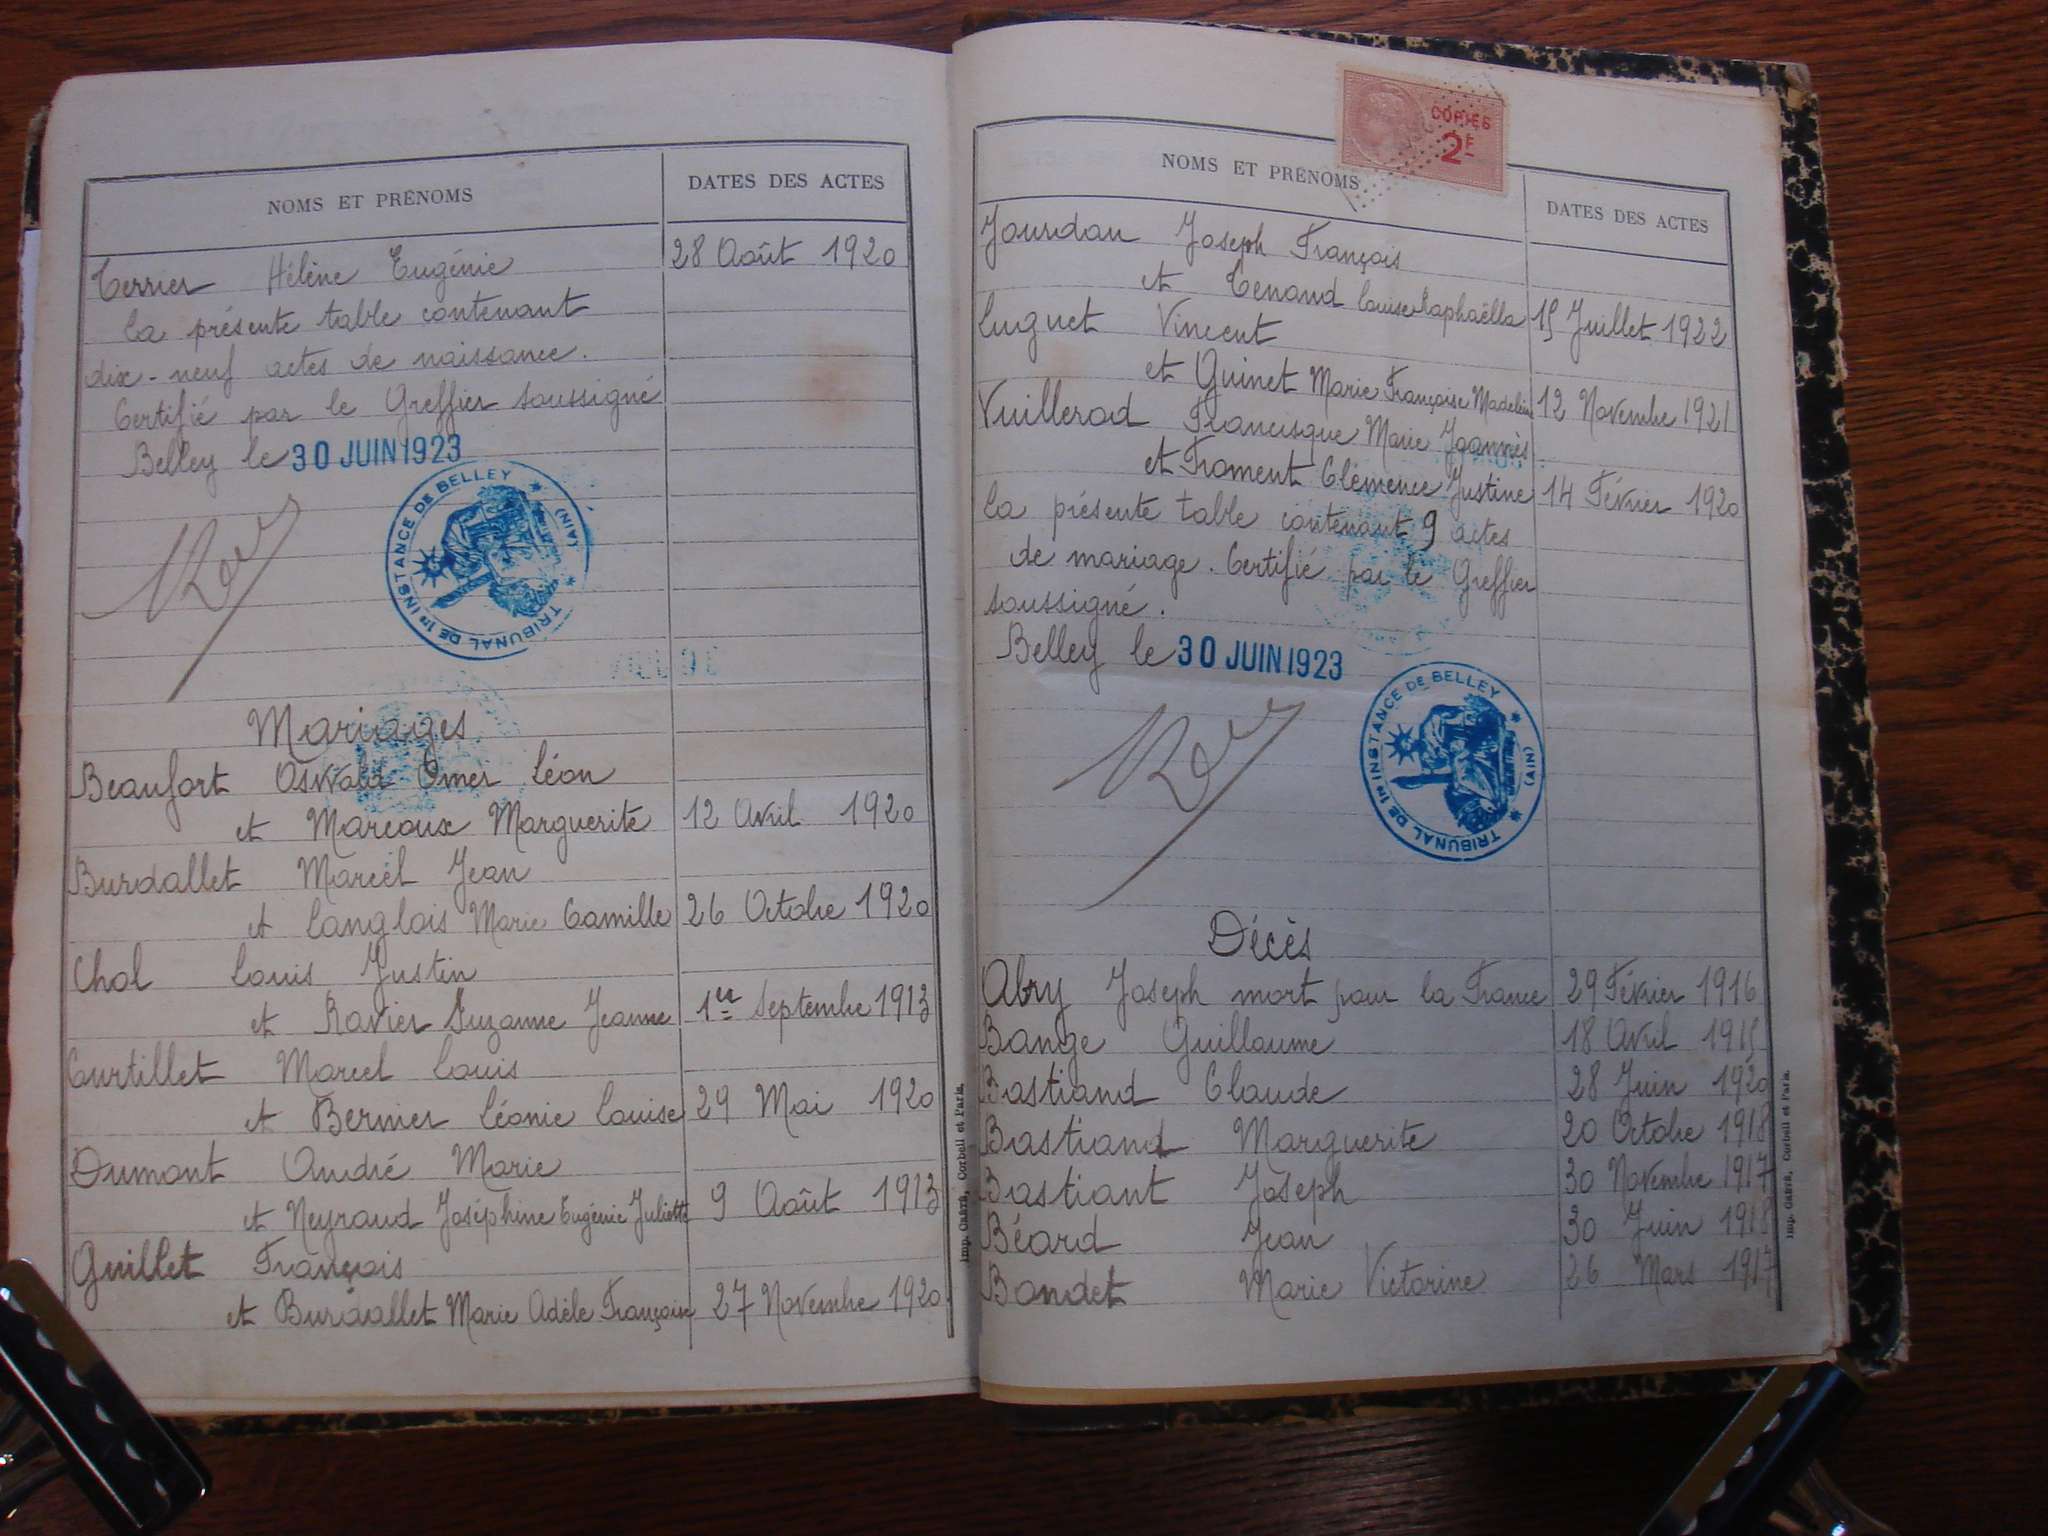 NOMS ET PRÉNOMS
DATES DES ACTES
Terrier Hélène Eugénie 28 Août 1920
La présente table contenant
dix-neuf actes de naissance.
Certifié par le Greffier soussigné
Belley le 30 JUIN 1923
TRIBUNAL DE 1re INSTANCE DE BELLEY
(AIN)
Mariages
Beaufort Oswald Omer Léon
et Marcoux Marguerite 12 Avril 1920
Burdallet Marcel Jean
et Langlois Marie Camille 26 Octobre 1920
Chol Louis Justin
et Ravier Suzanne Jeanne 1er Septembre 1913
Curtillet Marcel Louis
et Bernier Léonie Louise 29 Mai 1920
Dumont André Marie
et Neyraud Joséphine Eugénie Juliette 9 Août 1913
Guillet François
et Burdallet Marie Adèle Françoise 27 Novembre 1920
Imp. Corbeil et Paris.
COPIES
2F
NOMS ET PRÉNOMS
DATES DES ACTES
Jourdan Joseph François
et Tenand Louise Raphaëlla 15 Juillet 1922
Luguet Vincent
et Guinet Marie Françoise Madeleine 12 Novembre 1921
Vuillerod Francisque Marie Joannès
et Froment Clémence Justine 14 Février 1920
La présente table contenant 9 actes
de mariage. Certifié par le Greffier
soussigné.
Belley le 30 JUIN 1923
TRIBUNAL DE 1re INSTANCE DE BELLEY
(AIN)
Décès
Abry Joseph mort pour la France 29 Février 1916
Bange Guillaume 18 Avril 1915
Bastiand Claude 28 Juin 1920
Bastiand Marguerite 20 Octobre 1918
Bastiant Joseph 30 Novembre 1917
Béard Jean 30 Juin 1918
Bandet Marie Victorine 26 Mars 1917
Imp. Corbeil et Paris.